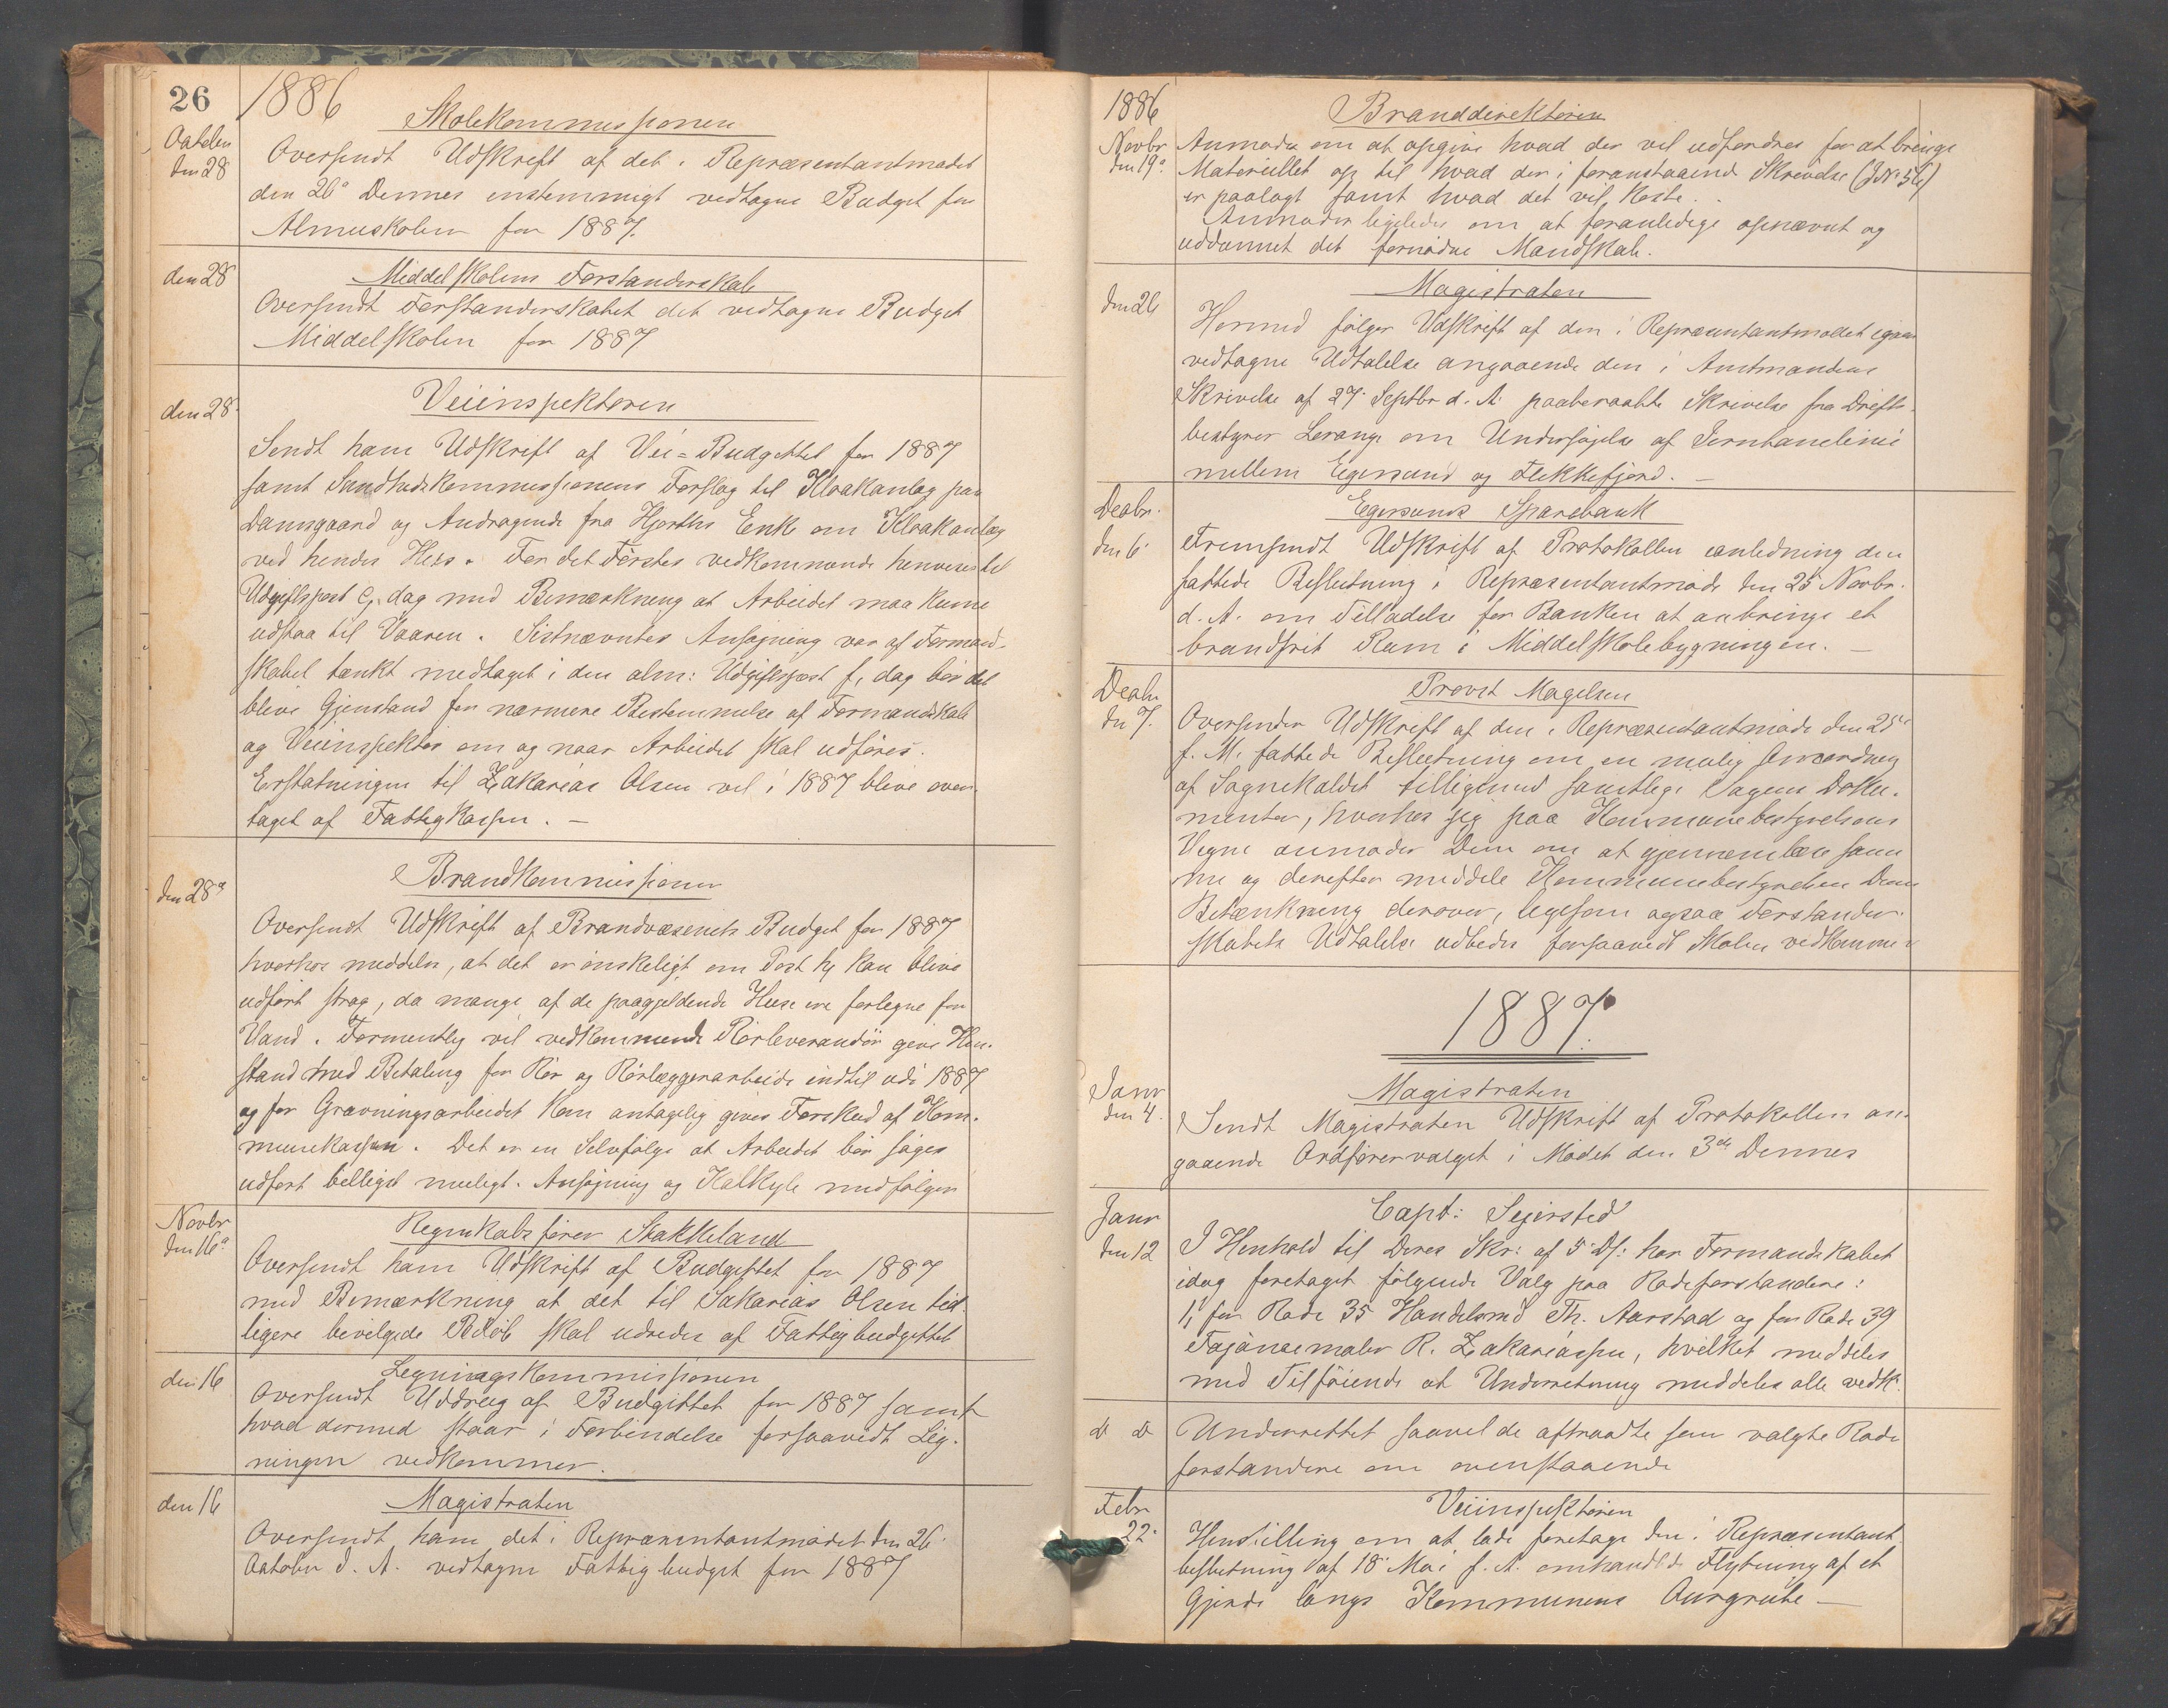 26
1886
Skolekommissionen
October
den 28
Oversendt Udskrift af det i Repræsentantmødet
den 26' Dennes enstemmigt vedtagne Budget for
Almueskolen for 1887.
den 28
Middelskolens Forstanderskab
Oversendt Forstanderskabet det vedtagne Budget
Middelskolen for 1887
den 28
Veiinspektøren
Sendt ham Udskrift af Vei-Budgettet for 1887
samt Sundhedskommissionens Forslag til Kloakanlæg paa
Damsgaard og Andragende fra Hjorths Enke om Kloakanlæg
ved hendes Hus. For det Førstes vedkommende henvises til
Udgiftspost e, dog med Bemærkning at Arbeidet maa kunne
udstaa til Vaaren. Sistnævntes Ansøgning var af Formand-
skabet tænkt medtaget i den alm: Udgiftspost f, dog bør det
blive Gjenstand for nærmere Bestemmelse af Formandskab
og Veiinspektør om og naar Arbeidet skal udføres.
Erstatningen til Zakarias Olsen vil i 1887 blive over-
taget af Fattigkassen. —
den 28'
Brandkommissionen
Oversendt Udskrift af Brandvæsenets Budget for 1887
hvorhos meddeles, at det er ønskeligt om Post h, kan blive
udført strax, da mange af de paagjeldende Huse ere forlegne for
Vand. Formentlig vil vedkommende Rørleverandør give Hen-
stand med Betaling for Rør og Rørlæggerarbeide indtil udi 1887
og for Gravningsarbeidet kan antagelig gives Forskud af Kom-
munekassen. Det er en Selvfølge at Arbeidet bør søges
udført billigst muligt. Ansøgning og Kalkyle medfølger
Novbr
den 16'
Regnskabsfører Stakkeland
Oversendt ham Udskrift af Budgettet for 1887
med Bemærkning at det til Sakarias Olsen tid-
ligere bevilgede Beløb skal udredes af Fattigbudgettet
den 16
Ligningskommissionen
Oversendt Uddrag af Budgettet for 1887 samt
hvad dermed staar i Forbindelse forsaavidt Lig-
ningen vedkommer.
den 16
Magistraten
Oversendt ham det i Repræsentantmødet den 26'
October d. A. vedtagne Fattigbudget for 1887
1886
Branddirektøren
Novbr
den 19'
Anmoder om at opgive hvad der vil udfordres for at bringe
Materiellet op til hvad der i foranstaaende Skrivelse (J.No 56)
er paalagt samt hvad det vil koste.
Anmoder ligeledes om at foranledige opnævnt og
uddannet det fornødne Mandskab.
Magistraten
den 26
Hermed følger Udskrift af den i Repræsentantmødet igaar
vedtagne Udtalelse angaaende den i Amtmandens
Skrivelse af 27' Septbr d. A. paaberaabte Skrivelse fra Drifts-
bestyrer Lerange om Undersøgelse af Jernbanelinie
mellem Egersund og Flekkefjord. —
Decbr.
den 6'
Egersunds Sparebank
Fremsendt Udskrift af Protokollen anledning den
fattede Beslutning i Repræsentantmøde den 25' Novbr.
d. A. om Tilladelse for Banken at anbringe et
brandfrit Rum i Middelskolebygningen. —
Decbr
den 7.
Provst Magelsen
Oversender Udskrift af den i Repræsentantmøde den 25'
f. M. fattede Beslutning om en mulig Omordning
af Sognekaldet tilligemed samtlige Sagens Doku-
menter, hvorhos jeg paa Kommunebestyrelsens
Vegne anmoder Dem om at gjennemlæse sam
me og derefter meddele Kommunebestyrelsen Deres
Betænkning derover, ligesom ogsaa Forstander-
skabets Udtalelse udbedes forsaavidt Skolen vedkommer
1887.
Janr
den 4.
Magistraten
Sendt Magistraten Udskrift af Protokollen an-
gaaende Ordførervalget i Mødet den 3de Dennes
Janr
den 12
Capt: Sejersted
I Henhold til Deres Skr: af 5' Ds: har Formandskabet
idag foretaget følgende Valg paa Rodeforstandere:
1, for Rode 35 Handelsmd Th. Aarstad og for Rode 39
Fajancemaler R. Zakariassen, hvilket meddeles
med Tilføiende at Underretning meddeles alle vedk.
d d
Underrettet saavel de aftraadte som valgte Rode
forstandere om ovenstaaende
Febr
22'
Veiinspektøren
Henstilling om at lade foretage den i Repræsentant
beslutning af 18' Mai f. A. omhandlede Flytning af et
Gjerde langs Kommunens Aurgrube —